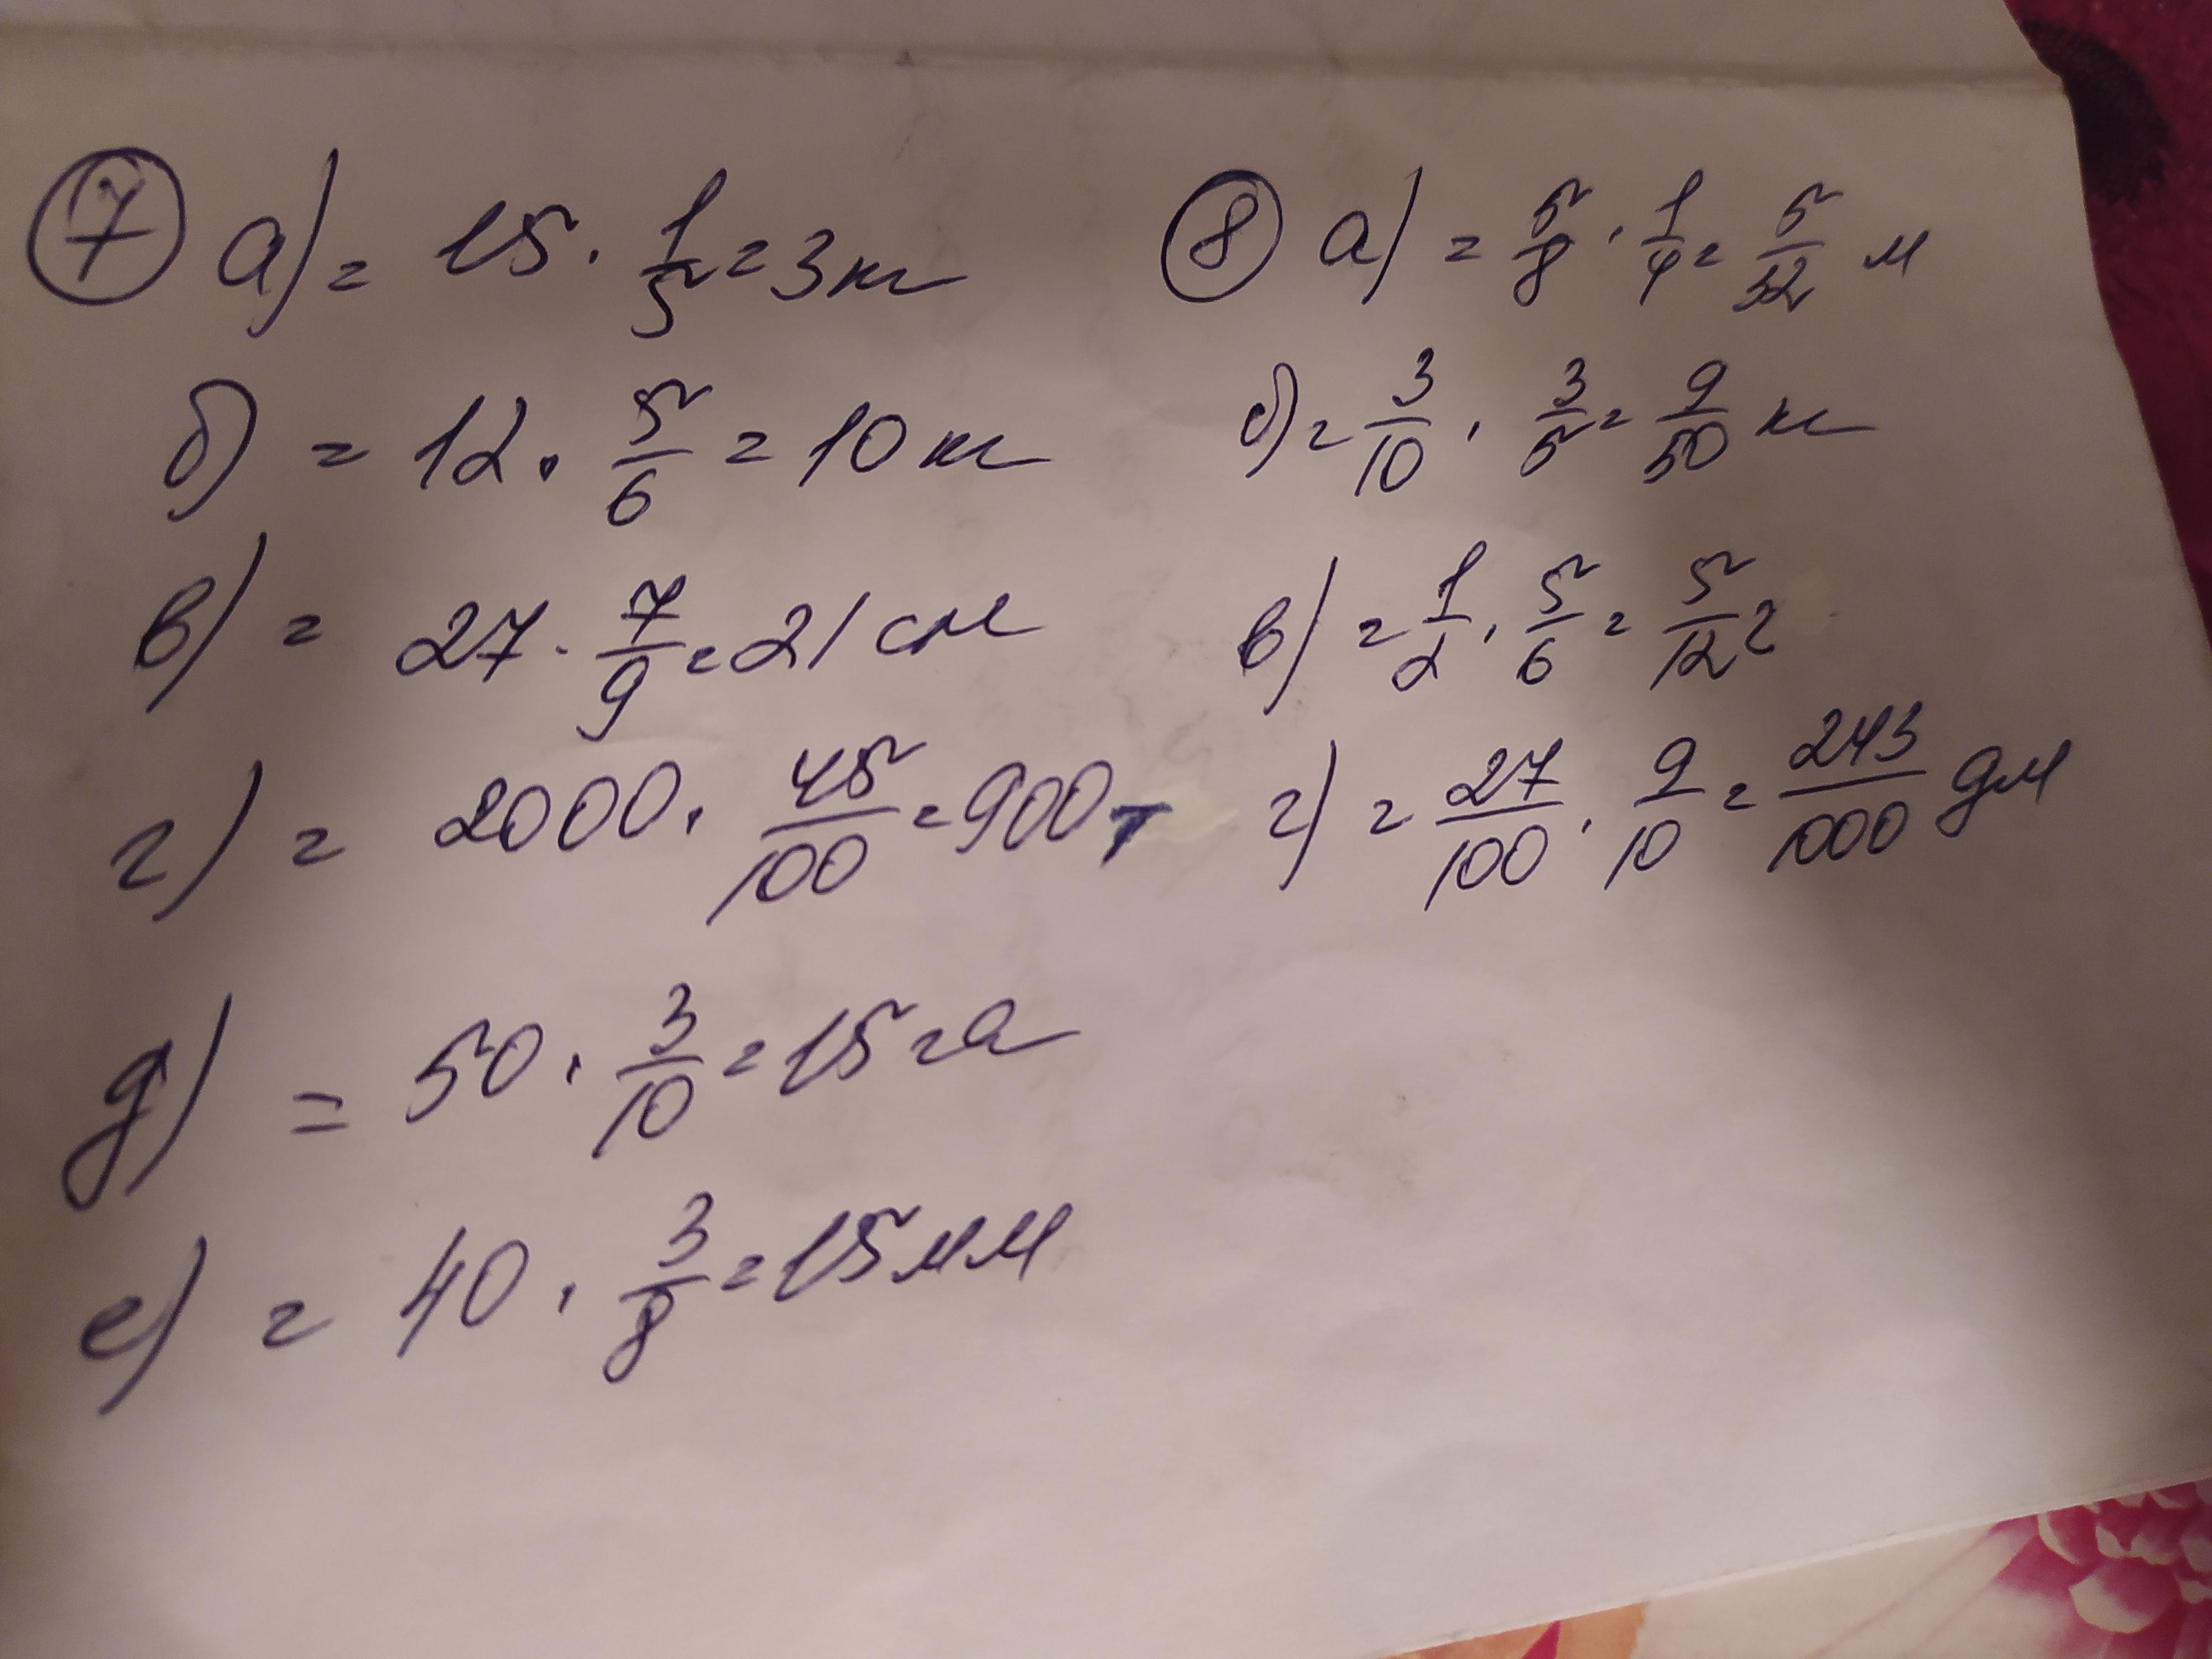 7 а) = 15 · 1/5 = 3 кг
б) = 12 · 5/6 = 10 кг
в) = 27 · 7/9 = 21 см
г) = 2000 · 45/100 = 900 т
д) = 50 · 3/10 = 15 га
е) = 40 · 3/8 = 15 мм
8 а) = 5/8 · 1/4 = 5/32 м
б) = 3/10 · 3/5 = 9/50 кг
в) = 1/2 · 5/6 = 5/12 г
г) = 27/100 · 9/10 = 243/1000 дм